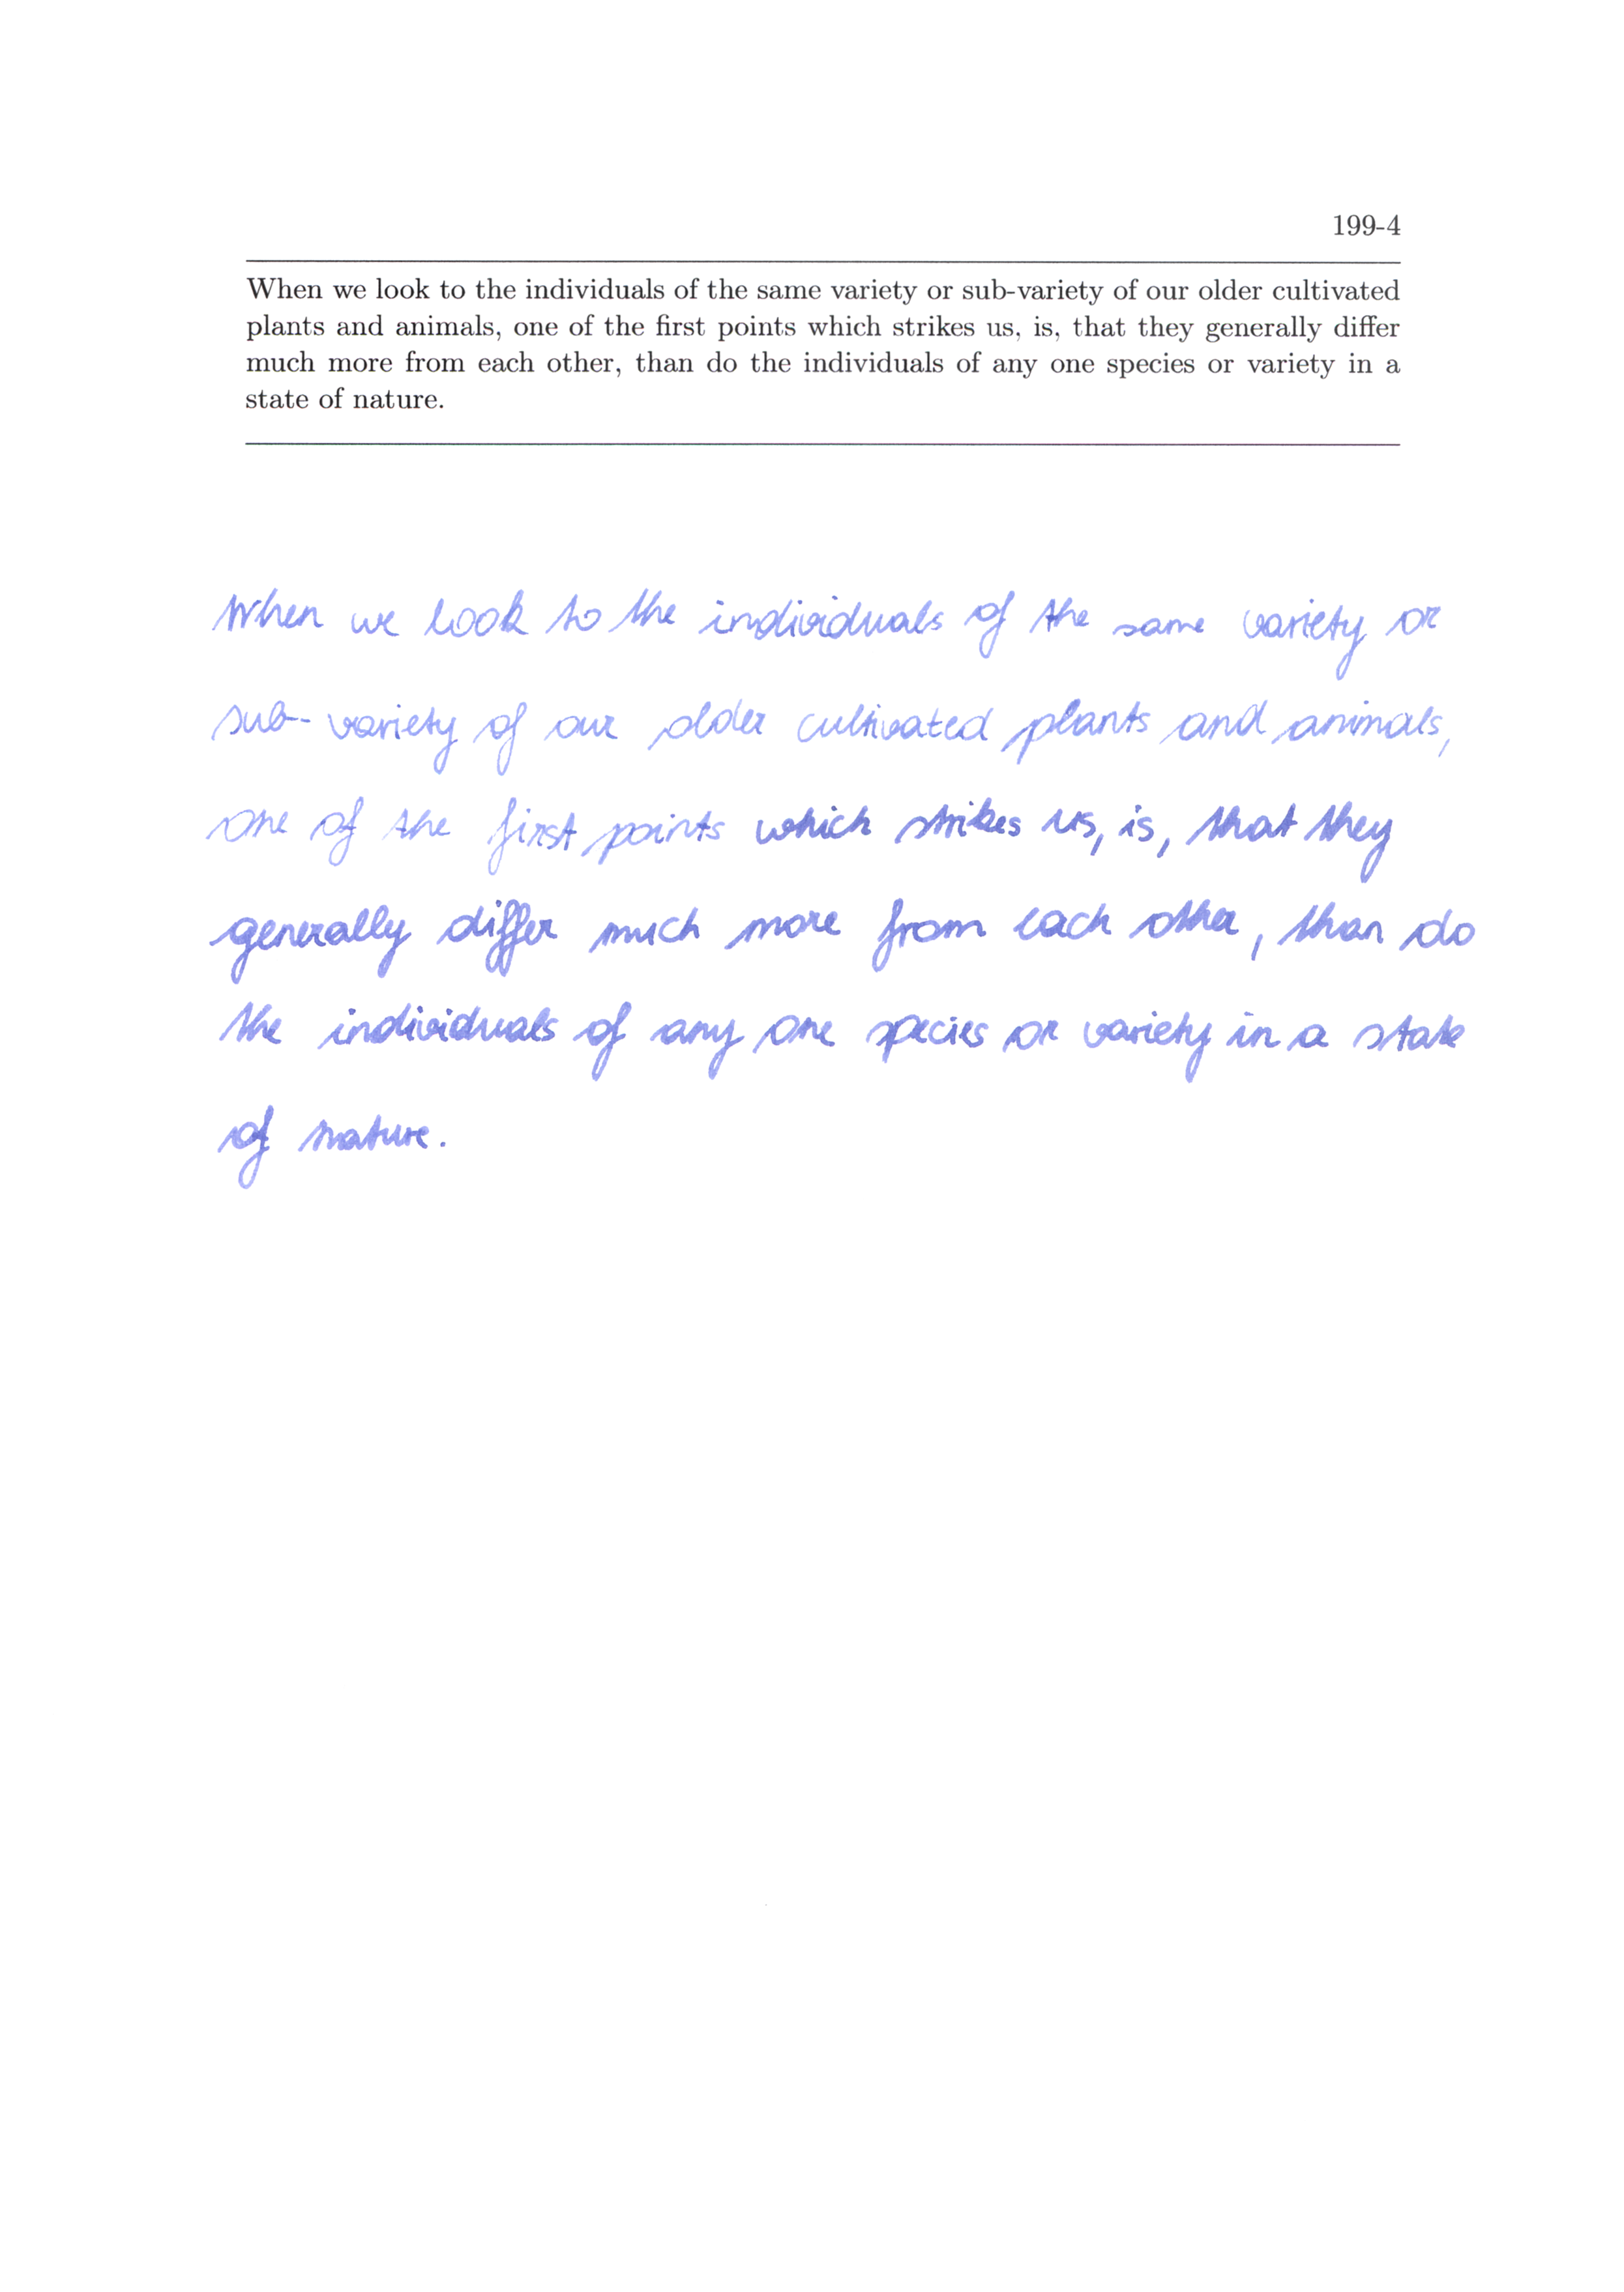 199-4
When we look to the individuals of the same variety or sub-variety of our older cultivated
plants and animals, one of the first points which strikes us, is, that they generally differ
much more from each other, than do the individuals of any one species or variety in a
state of nature.
When we look to the individuals of the same variety or
sub-variety of our older cultivated plants and animals,
one of the first points which strikes us, is, that they
generally differ much more from each other, than do
the individuals of any one species or variety in a state
of nature.